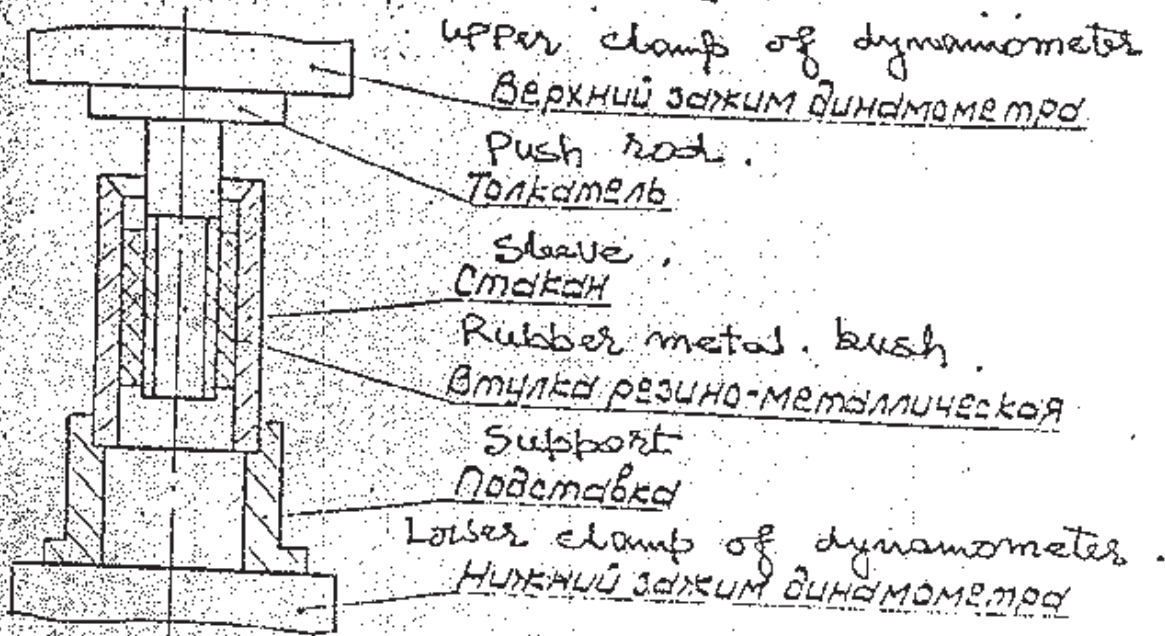 upper clamp of dynamometer
Верхний зажим динамометра
Push rod.
Толкатель
Sleeve.
Стакан
Rubber metal. bush.
Втулка резино-металлическая
Support
Подставка
Lower clamp of dynamometer.
Нижний зажим динамометра